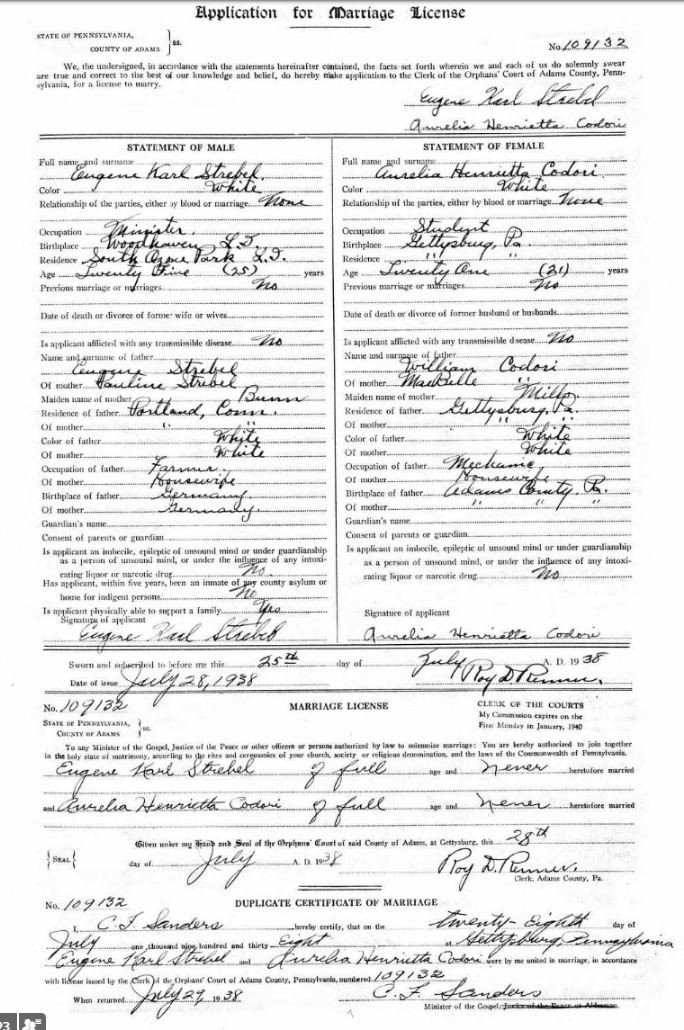 Application for Marriage License
STATE OF PENNSYLVANIA,
COUNTY OF ADAMS } ss.
No. 109132
We, the undersigned, in accordance with the statements hereinafter contained, the facts set forth wherein we and each of us do solemnly swear
are true and correct to the best of our knowledge and belief, do hereby make application to the Clerk of the Orphans' Court of Adams County, Penn-
sylvania, for a license to marry.
Eugene Karl Strebel
Aurelia Henrietta Codori
STATEMENT OF MALE
Full name and surname Eugene Karl Strebel.
Color White
Relationship of the parties, either by blood or marriage. None
Occupation Minister.
Birthplace Woodhaven L.I.
Residence South Ozone Park L.I.
Age Twenty Five (25) years
Previous marriage or marriages. No
Date of death or divorce of former wife or wives
Is applicant afflicted with any transmissible disease. No
Name and surname of father
Eugene Strebel
Of mother Pauline Strebel
Maiden name of mother Bunn
Residence of father Portland, Conn.
Of mother " "
Color of father White
Of mother White
Occupation of father Farmer.
Of mother Housewife
Birthplace of father Germany
Of mother Germany.
Guardian's name
Consent of parents or guardian
Is applicant an imbecile, epileptic of unsound mind or under guardianship
as a person of unsound mind, or under the influence of any intoxi-
cating liquor or narcotic drug No
Has applicant, within five years, been an inmate of any county asylum or
home for indigent persons. No
Is applicant physically able to support a family. Yes
Signature of applicant
Eugene Karl Strebel
STATEMENT OF FEMALE
Full name and surname
Aurelia Henrietta Codori
Color White
Relationship of the parties, either by blood or marriage None
Occupation Student
Birthplace Gettysburg, Pa.
Residence " "
Age Twenty One (21) years
Previous marriage or marriages. No
Date of death or divorce of former husband or husbands.
Is applicant afflicted with any transmissible disease. No
Name and surname of father
William Codori
Of mother "
Maiden name of mother Mills
Residence of father Gettysburg, Pa.
Of mother " "
Color of father White
Of mother White
Occupation of father Mechanic
Of mother Housewife
Birthplace of father Adams County, Pa.
Of mother " " "
Guardian's name
Consent of parents or guardian.
Is applicant an imbecile, epileptic of unsound mind or under guardianship
as a person of unsound mind, or under the influence of any intoxi-
cating liquor or narcotic drug No
Signature of applicant
Aurelia Henrietta Codori
Sworn and subscribed to before me this 25th day of July A. D. 1938
Date of issue July 28, 1938 Roy D. Renner.
No. 109132 MARRIAGE LICENSE
CLERK OF THE COURTS
My Commission expires on the
First Monday in January, 1940
STATE OF PENNSYLVANIA,
COUNTY OF ADAMS } ss.
To any Minister of the Gospel, Justice of the Peace or other officers or persons authorized by law to solemnize marriage: You are hereby authorized to join together
in the holy state of matrimony, according to the rites and ceremonies of your church, society or religious denomination, and the laws of the Commonwealth of Pennsylvania.
Eugene Karl Strebel of full age and never heretofore married
and Aurelia Henrietta Codori of full age and never heretofore married
Given under my Hand and Seal of the Orphans' Court of said County of Adams, at Gettysburg, this 28th
{ SEAL } day of July A. D. 1938
Roy D. Renner.
Clerk, Adams County, Pa.
No. 109132 DUPLICATE CERTIFICATE OF MARRIAGE
I, C. F. Sanders hereby certify, that on the twenty-Eighth day of
July one thousand nine hundred and thirty Eight at Gettysburg Pennsylvania
Eugene Karl Strebel and Aurelia Henrietta Codori were by me united in marriage, in accordance
with license issued by the Clerk of the Orphans' Court of Adams County, Pennsylvania, numbered 109132
When returned July 29 1938 C. F. Sanders
Minister of the Gospel, Justice of the Peace or Alderman.
23